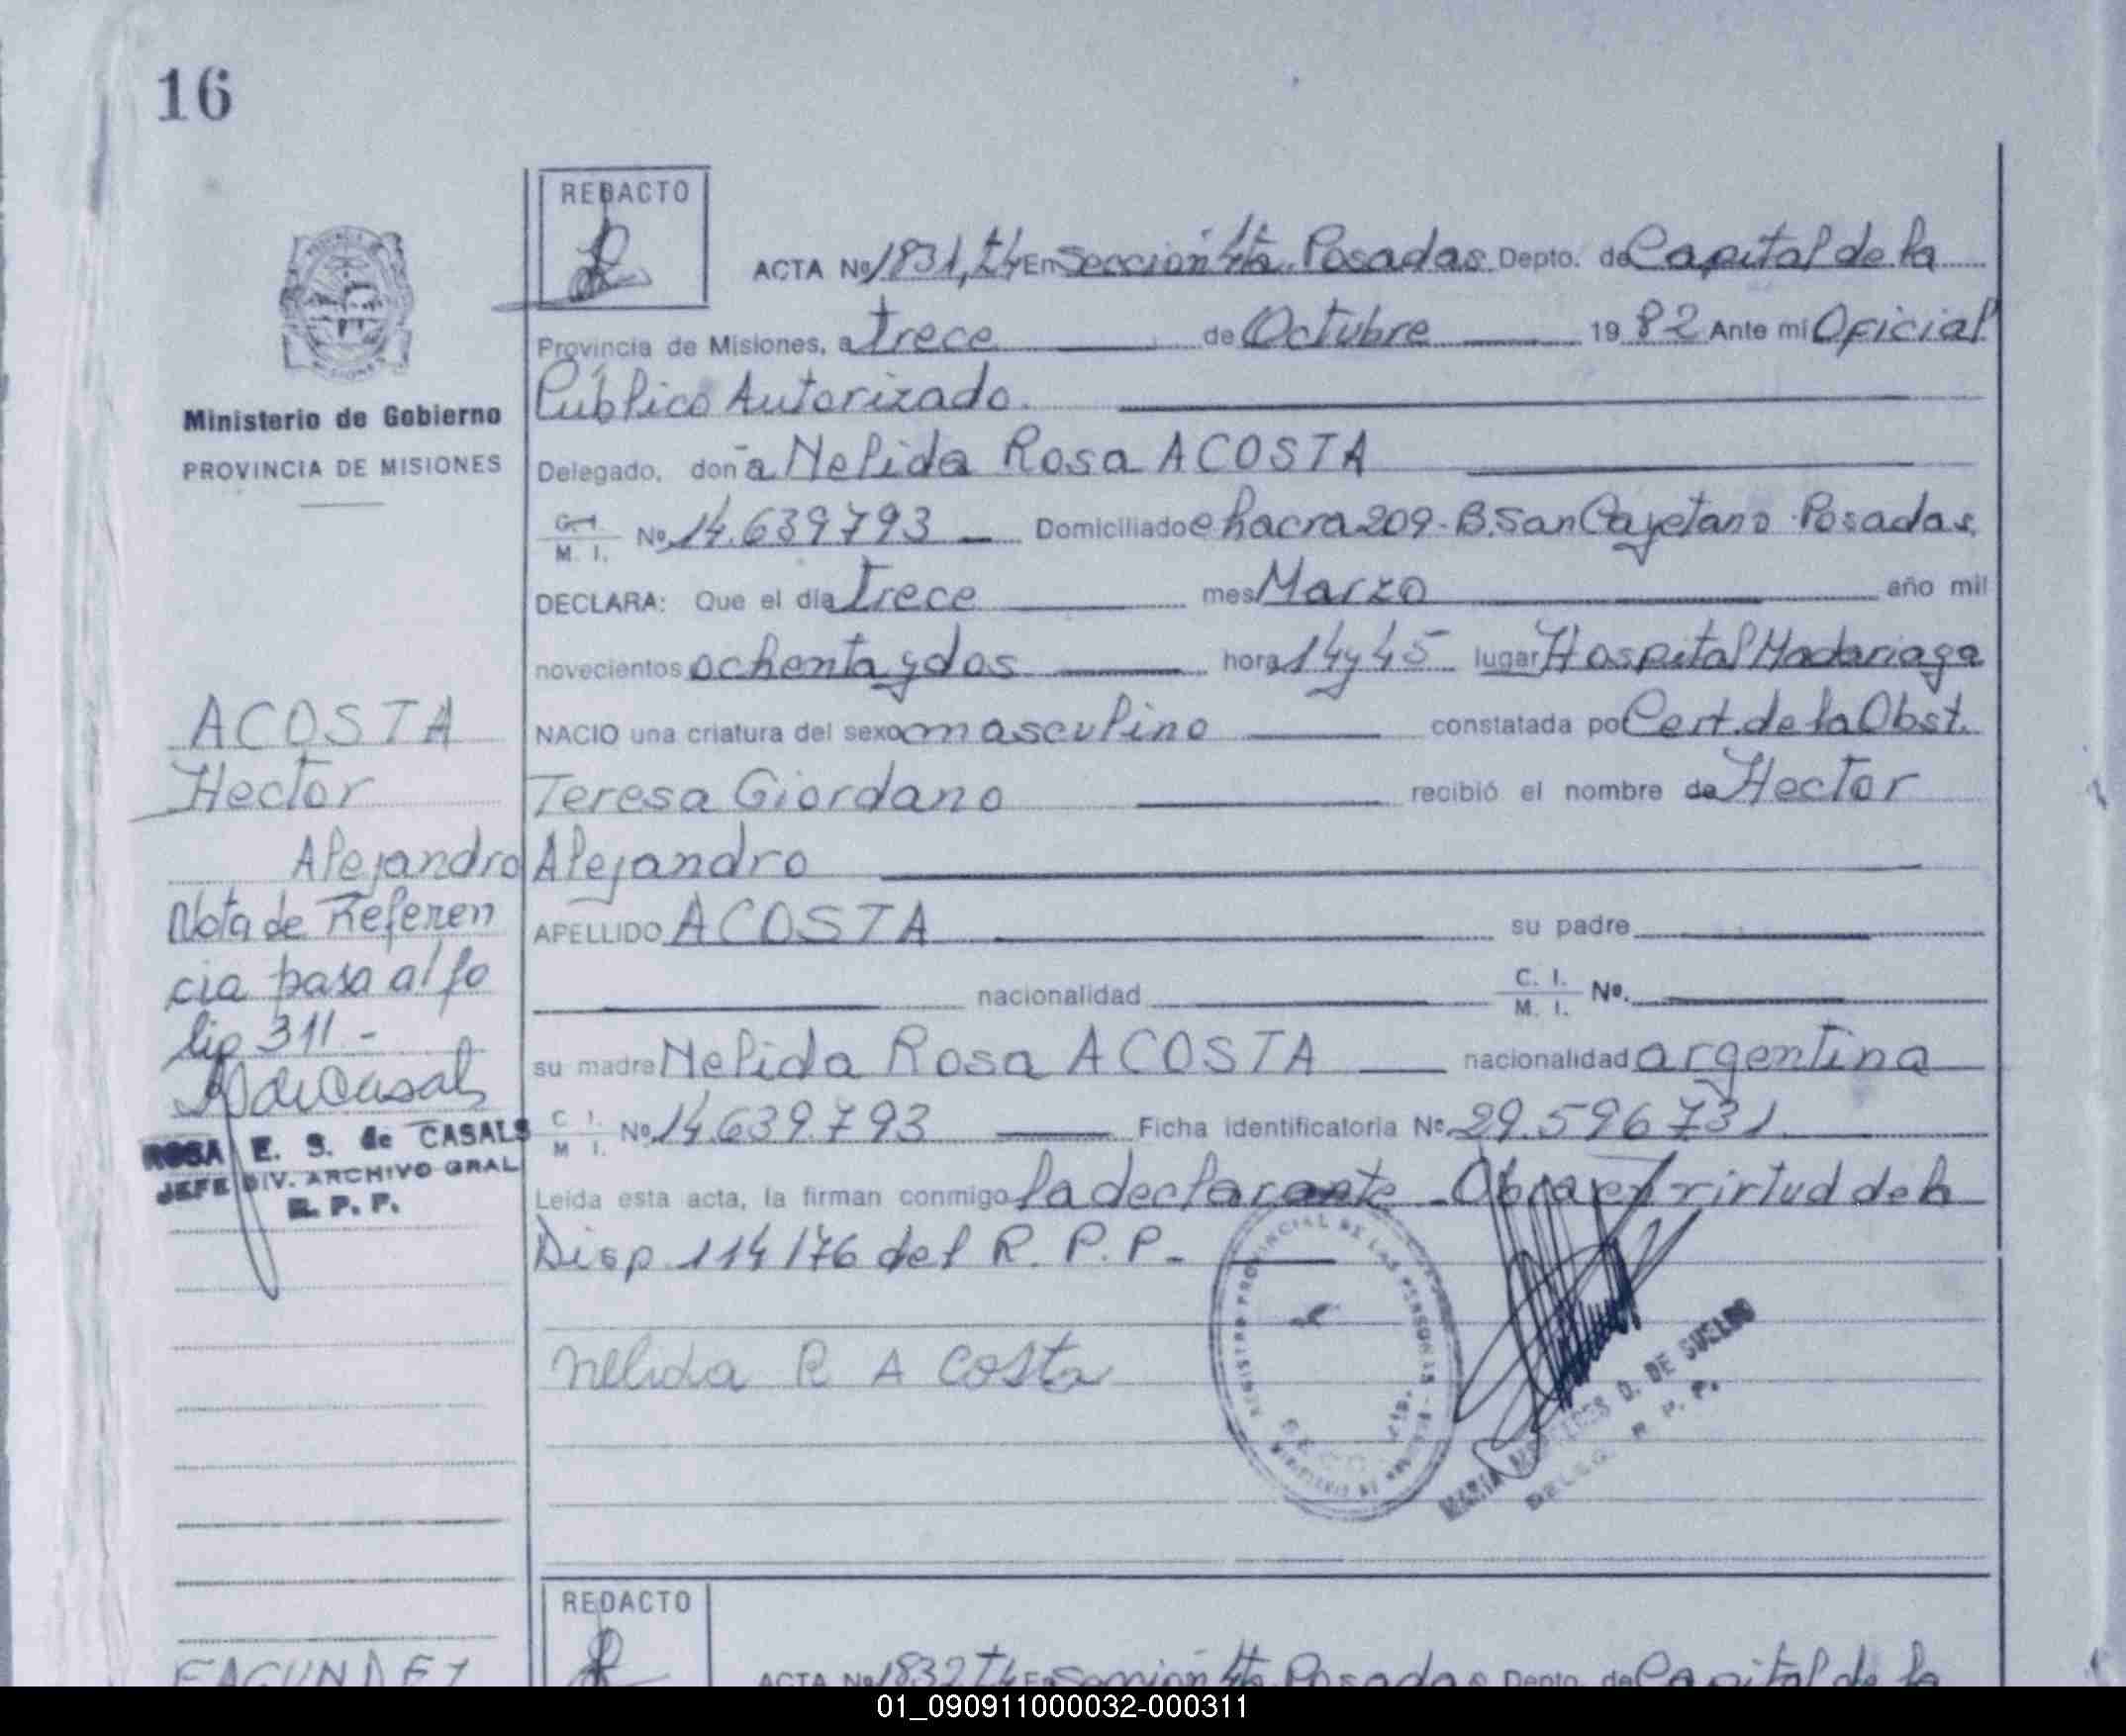 16
REDACTO
ACTA Nº 1831, t4 En Sección 4ta. Posadas Depto. de Capital de la
Provincia de Misiones, a trece de Octubre 1982 Ante mi Oficial
Público Autorizado.
Ministerio de Gobierno
PROVINCIA DE MISIONES
Delegado, don a Nelida Rosa ACOSTA
C. I.
M. I. Nº 14.639793 Domiciliado chacra 209 - B. San Cayetano - Posadas.
DECLARA: Que el día trece mes Marzo año mil
novecientos ochenta y dos hora 14 y 45 lugar Hospital Madariaga
NACIO una criatura del sexo masculino constatada por Cert. de la Obst.
Teresa Giordano recibió el nombre de Hector
Alejandro
APELLIDO ACOSTA su padre
nacionalidad C. I. M. I. Nº.
su madre Nelida Rosa ACOSTA nacionalidad argentina
C. I.
M. I. Nº 14.639.793 Ficha identificatoria Nº 29.596731
Leída esta acta, la firman conmigo la declarante - Obra en virtud de la
Disp. 114/76 del R. P. P. -
Nelida R Acosta
ACOSTA
Hector
Alejandro
Nota de Referen
cia pasa al fo
lio 311 -
ROSA E. S. de CASALS
JEFE DIV. ARCHIVO GRAL
R. P. P.
REGISTRO PROVINCIAL DE LAS PERSONAS
DE SUELDO
R. P. P.
REDACTO
ACTA Nº 1832 t4 En Sección 4ta Posadas Depto. de Capital de la
01_090911000032-000311